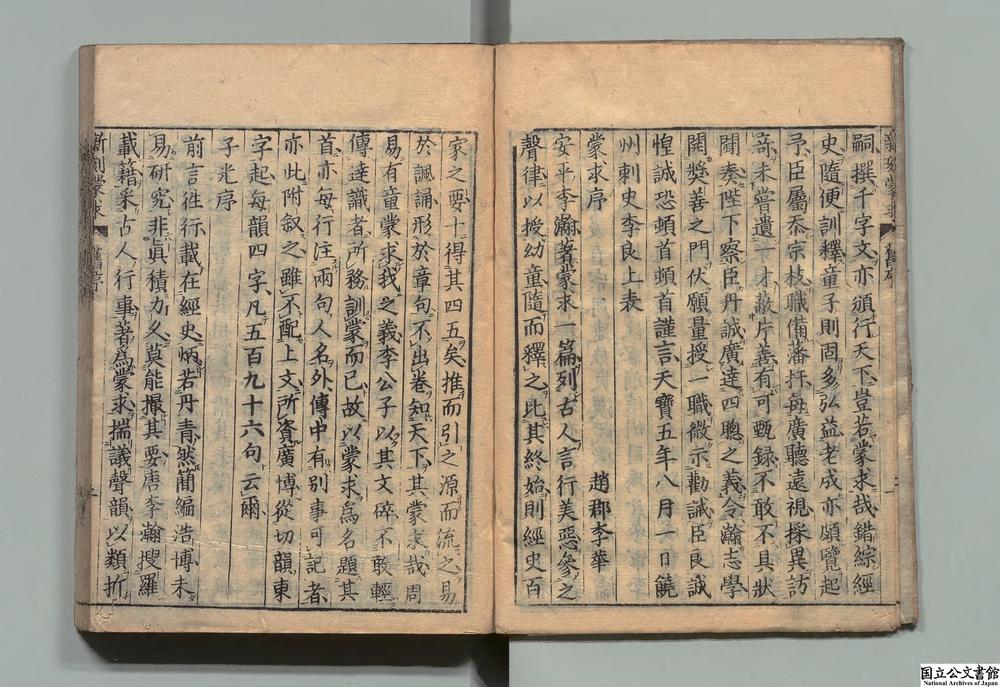 嗣撰千字文亦頒行天下豈若蒙求哉錯綜經
史隨便訓釋童子則固多弘益老成亦頗覽起
予臣屬忝宗枝職備藩扞每廣聽遠視採異訪
奇未嘗遺一才蔽片善有可甄録不敢不具狀
聞奏陛下察臣丹誠廣達四聰之義令瀚志學
開奬善之門伏願量授一職微示勸誡臣良誠
惶誠恐頓首頓首謹言天寶五年八月一日饒
州刺史李良上表
蒙求序
趙郡李華
安平李瀚著蒙求一篇列古人言行美惡參之
聲律以授幼童隨而釋之比其終始則經史百
家之要十得其四五矣推而引之源而流之易
於諷誦形於章句不出卷知天下其蒙求哉周
易有童蒙求我之義李公子以其文碎不敢輕
傳達識者所務訓蒙而已故以蒙求爲名題其
首亦每行注兩句人名外傳中有別事可記者
亦此附叙之雖不配上文所資廣博從切韻東
字起每韻四字凡五百九十六句云爾
子光序
前言徃行載在經史炳若丹青然簡編浩博未
易研究非眞積力久莫能撮其要唐李瀚搜羅
載籍采古人行事著爲蒙求揣議聲韻以類折
新刻蒙求
舊序
一
国立公文書館
National Archives of Japan